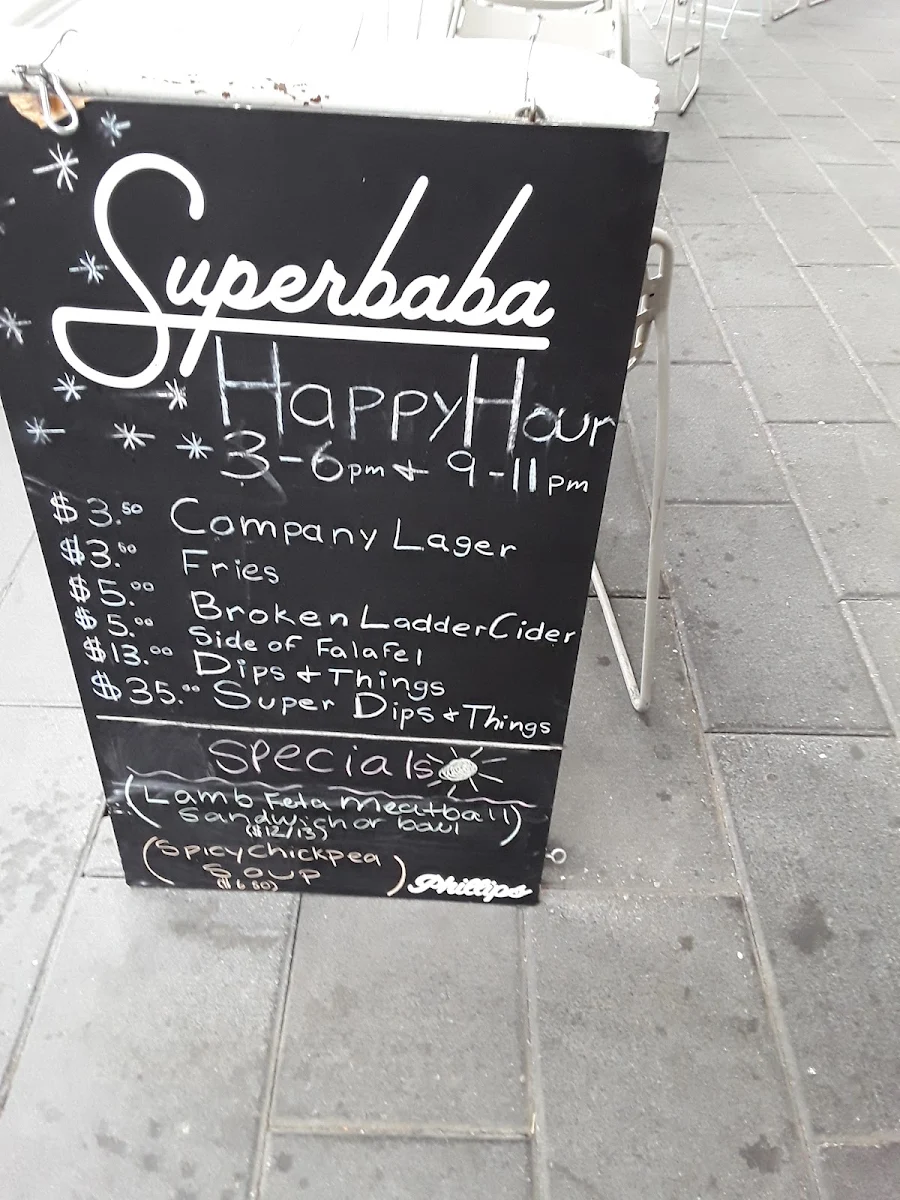 Superbaba
Happy Hour
3-6pm & 9-11pm
$3.50 Company Lager
$3.50 Fries
$5.00 Broken Ladder Cider
$5.00 Side of Falafel
$13.00 Dips & Things
$35.00 Super Dips & Things
Specials
(Lamb Feta Meatball)
Sandwich or bowl
($12/13)
(Spicy Chickpea
Soup )
($6.50)
Phillips